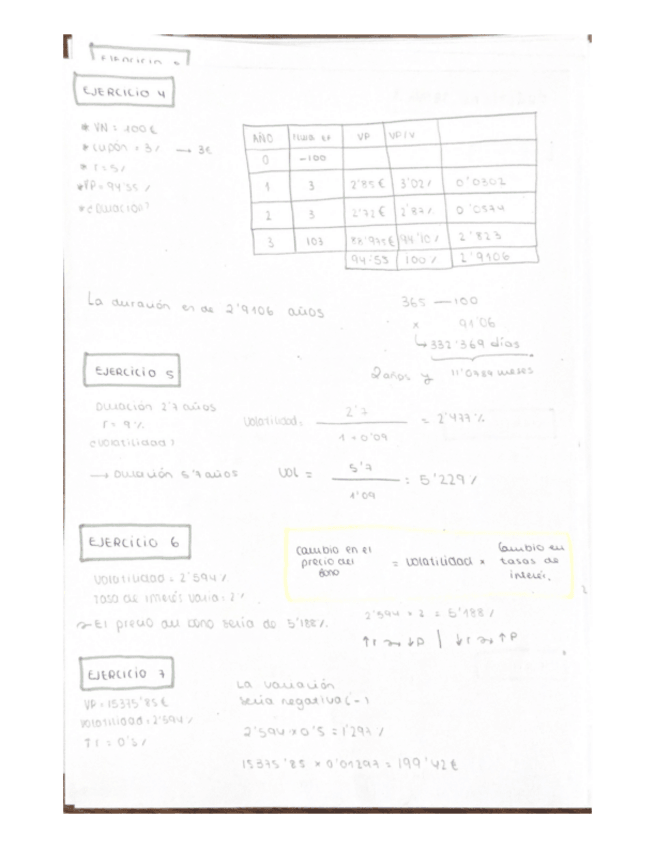 EJERCICIO 4
* VN = 100 €
* cupón = 3% → 3€
* r = 5%
* VP = 94'55 %
* ¿Duración?
AÑO VP VP/V
0 -100
1 3 2'85 € 3'02% 0'0302
2 3 2'72 € 2'87% 0'0574
3 103 88'975€ 94'10% 2'823
94'55 100% 2'9106
La duración es de 2'9106 años
365 — 100
x 91'06
↳ 332'369 días
2 años y 11'0789 meses
EJERCICIO 5
Duración 2'7 años
r = 9%
¿Volatilidad?
Volatilidad = 2'7 / 1+0'09 = 2'477%
→ Duración 5'7 años Vol = 5'7 / 1'09 = 5'229%
EJERCICIO 6
cambio en el precio del bono = volatilidad × cambio en tasas de interés.
Volatilidad = 2'594%
Tasa de interés varia = 2%
2'594 × 2 = 5'188%
El precio del bono sería de 5'188%.
↑r ↓P | ↓r ↑P
EJERCICIO 7
VP = 15375'85 €
Volatilidad = 2'594%
↑r = 0'5%
La variación
sería negativa (-)
2'594 × 0'5 = 1'297%
15375'85 × 0'01297 = 199'42 €